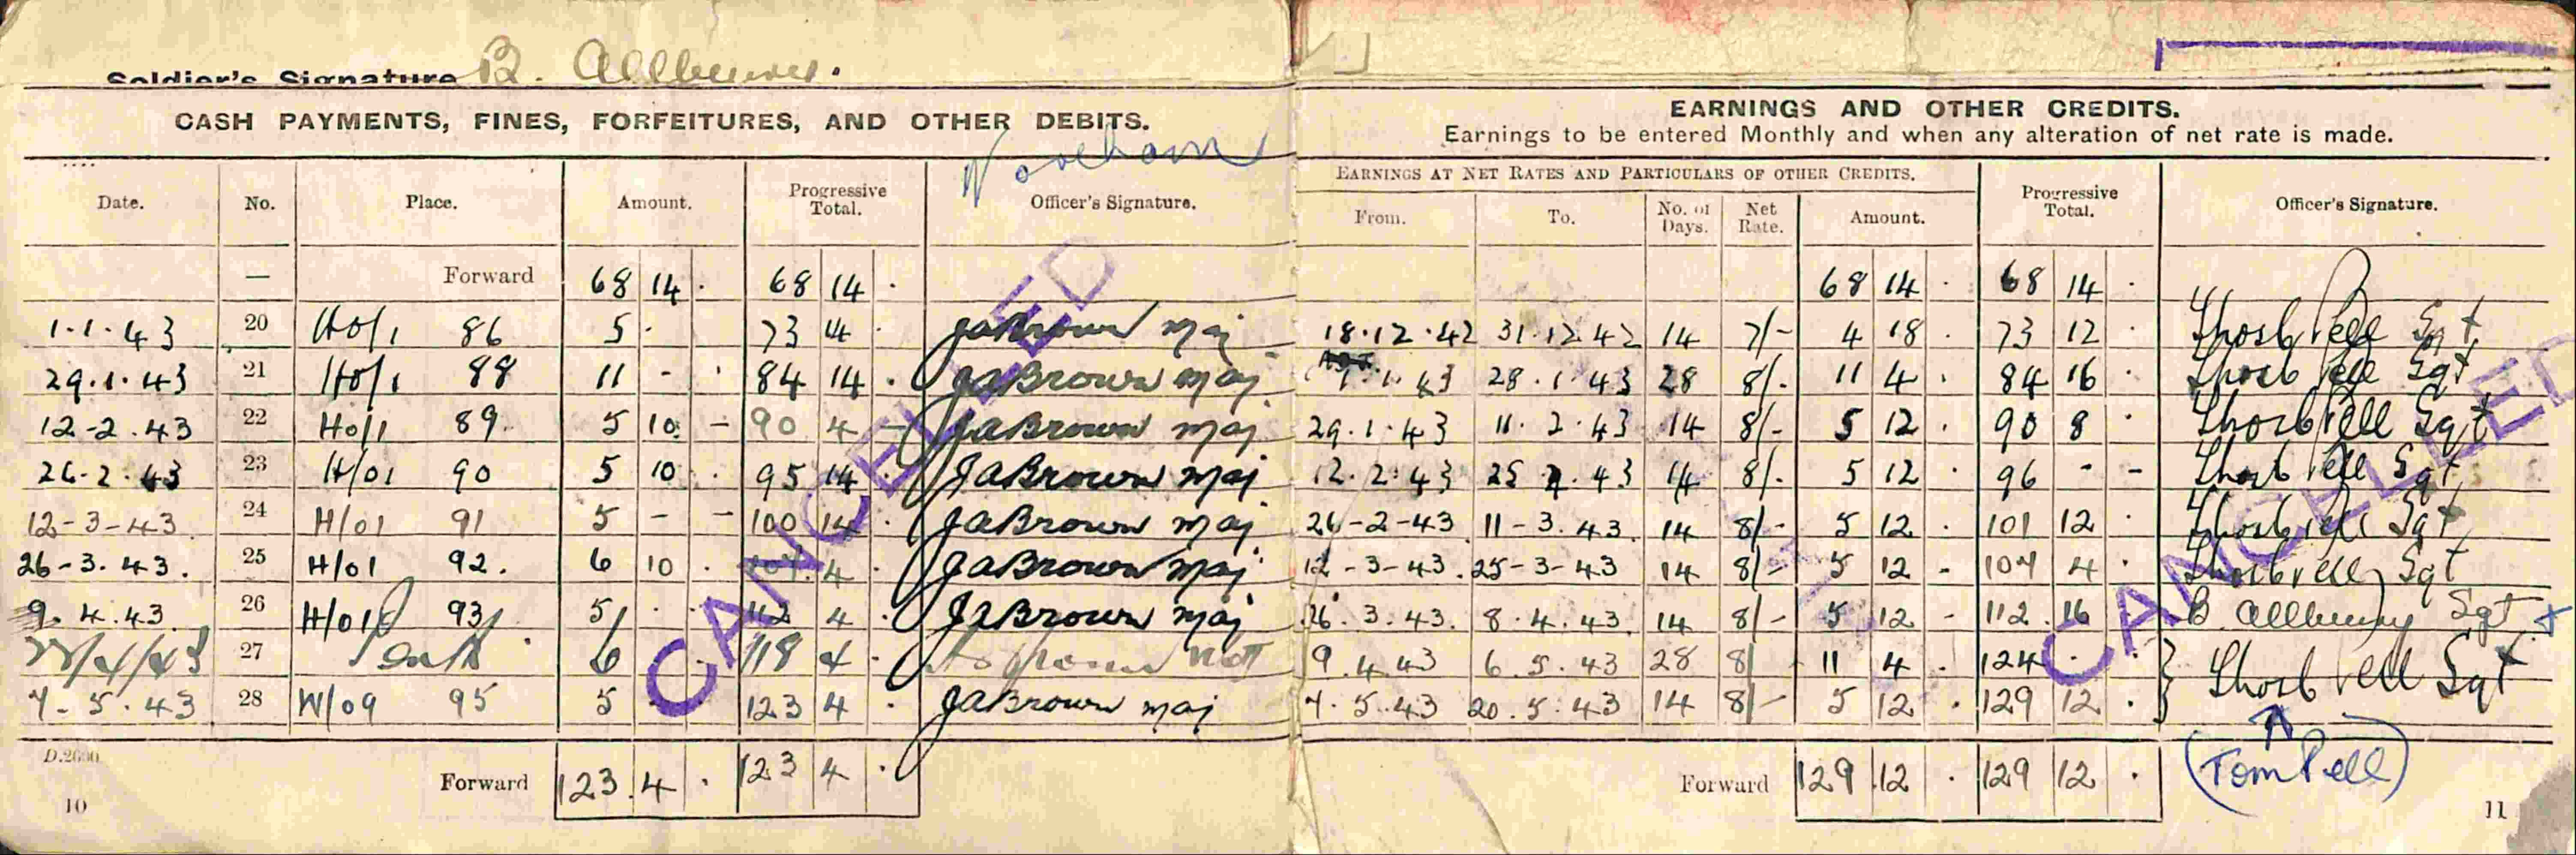 Soldier's Signature B. Allbury.
CASH PAYMENTS, FINES, FORFEITURES, AND OTHER DEBITS.
Date. No. Place. Amount. Progressive Total. Officer's Signature.
— Forward 68 14 · 68 14 ·
1·1·43 20 H0/1 86 5 · 73 14 · JaBrown Maj
29.1.43 21 H0/1 88 11 - · 84 14 · JaBrown Maj
12-2.43 22 H0/1 89. 5 10 - 90 4 - JaBrown Maj
26-2.43 23 H/01 90 5 10 · 95 14 · JaBrown Maj
12-3-43 24 H/01 91 5 - - 100 14 · JaBrown Maj
26-3.43. 25 H/01 92. 6 10 · 107 4 · JaBrown Maj
9.4.43 26 H/01 93 5 · · 112 4 · JaBrown Maj
27 6 118 4 ·
7-5.43 28 W/09 95 5 123 4 · JaBrown Maj
Forward 123.4 · 123 4 ·
D.2600
10
CANCELLED
EARNINGS AND OTHER CREDITS.
Earnings to be entered Monthly and when any alteration of net rate is made.
EARNINGS AT NET RATES AND PARTICULARS OF OTHER CREDITS.
From. To. No. of Days. Net Rate. Amount. Progressive Total. Officer's Signature.
68 14 · 68 14 ·
18·12·42 31.12.42 14 7/- 4 18 · 73 12 · Thosb Pell Sgt
1.1.43 28.1.43 28 8/- 11 4 · 84 16 · Thosb Pell Sgt
29.1.43 11.2.43 14 8/- 5 12 · 90 8 · Thosb Pell Sgt
12.2.43 25 2.43 14 8/- 5 12 · 96 - - Thosb Pell Sgt
26-2-43 11-3.43. 14 8/- 5 12 · 101 12 · Thosb Pell Sgt
12-3-43. 25-3-43 14 8/- 5 12 - 107 4 · Thosb Pell Sgt
26.3.43. 8.4.43. 14 8/- 5 12 - 112.16 B. Allbury Sgt
9.4.43 6.5.43 28 8/ 11 4 · 124 · · Thosb Pell Sgt
7.5.43 20.5.43 14 8/- 5 12 · 129 12 ·
(Tom Pell)
Forward 129 12 · 129 12 ·
11
CANCELLED